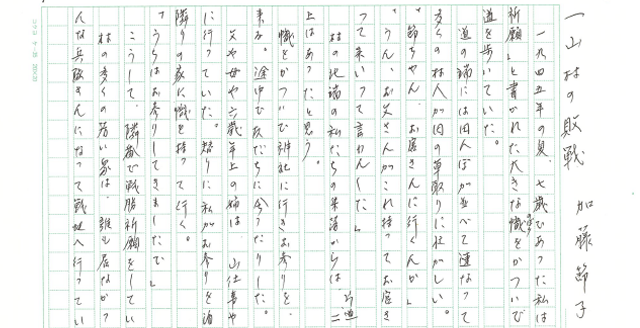 一山村の敗戦　加藤節子
一九四五年の夏、七歳であった私は
祈願」と書かれた大きな幟をかついで
道を歩いていた。
道の端には田んぼが並べて連なって
多くの村人が田の草取りに忙がしい。
「節ちゃん、お庭さんに行くんか」
「うん、お父さんがこれ持ってお庭さ
って来いって言わんした」
村の北端の私たちの集落からは、 二
上はあったと思う。
幟をかついで神社に行きお参りを
来る。途中で友だちに会ったりした。
父や母や六歳年上の姉は 山仕事や
に行っていた。替りに私がお参りを済
隣りの家に幟を持って行く。
「うちはお参りしてきましたで」
こうして、隣都び戦勝祈願をしてい
村の多くの若い衆は、誰も居なかっ
んな兵隊さんになって戦地へ行ってい